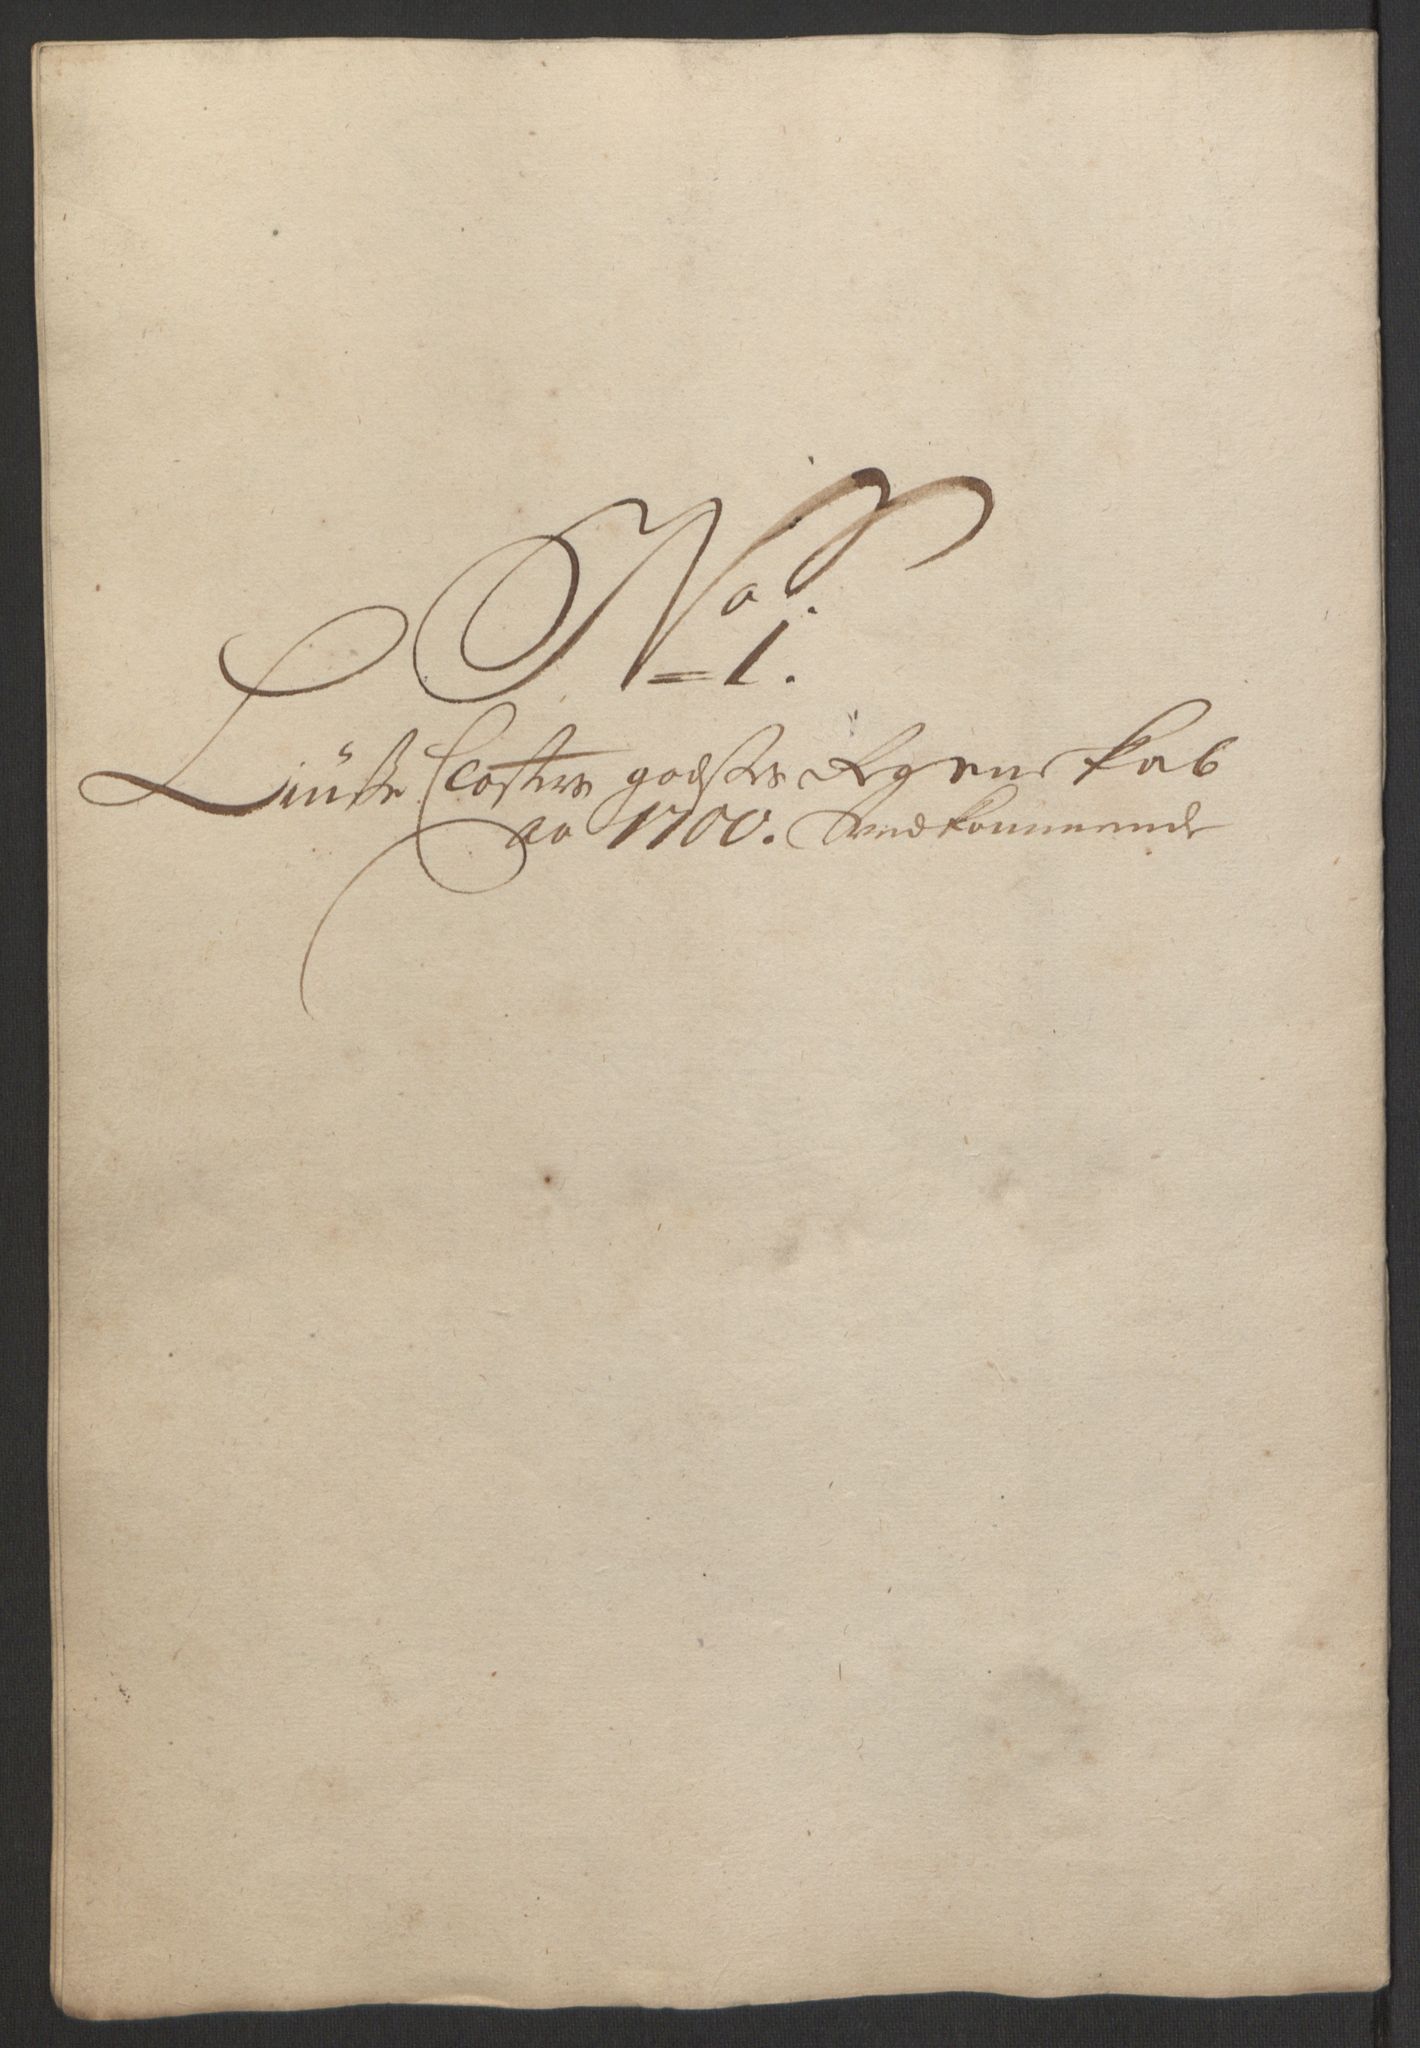 No 1.
Liüsse Closters godses Regenskab
ao 1700. Vedkommende